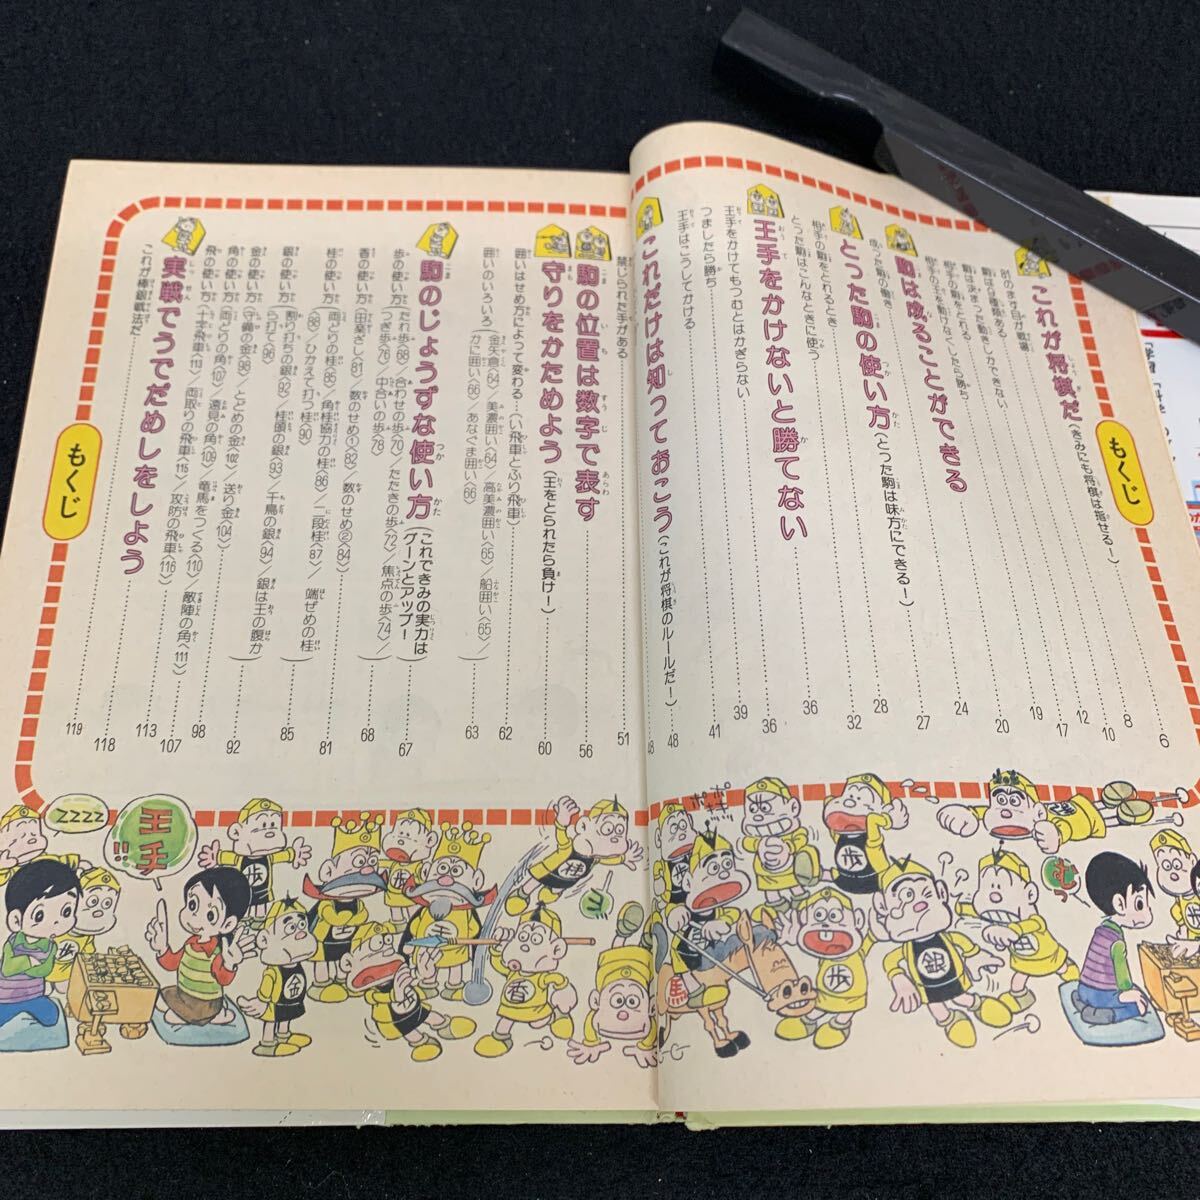 もくじ
これが将棋だ（きみにも将棋は指せる！）
6
81のます目が戦場 8
駒は8種類ある 10
駒は決まった動きしかできない 12
相手の駒をとれる 17
相手の王を動けなくしたら勝ち 19
駒は成ることができる 20
成った駒の働き 24
とった駒の使い方（とった駒は味方にできる！） 27
相手の駒をとれるとき 28
とった駒はこんなときに使う 32
王手をかけないと勝てない 36
王手をかけてもつむとはかぎらない 36
つましたら勝ち 39
王手はこうしてかける 41
これだけは知っておこう（これが将棋のルールだ！） 48
48
禁じられた手がある 51
駒の位置は数字で表す 56
守りをかためよう（王をとられたら負け！） 60
囲いはせめ方によって変わる（い飛車とふり飛車） 62
囲いのいろいろ 63
（金矢倉〈64〉／美濃囲い〈64〉／高美濃囲い〈65〉／船囲い〈65〉／
かに囲い〈66〉／あなぐま囲い〈66〉）
駒のじょうずな使い方（これできみの実力は
グーンとアップ！） 67
歩の使い方 68
（たれ歩〈68〉／合わせの歩〈70〉／たたきの歩〈72〉／焦点の歩〈74〉／
つぎ歩〈76〉／中合いの歩〈78〉）
香の使い方（田楽ざし〈81〉／数のせめ①〈82〉／数のせめ②〈84〉） 81
桂の使い方 85
（両どりの桂〈85〉／角桂協力の桂〈86〉／二段桂〈87〉／端ぜめの桂
〈90〉／ひかえて打つ桂〈90〉）
銀の使い方 92
（割り打ちの銀〈92〉／桂頭の銀〈93〉／千鳥の銀〈94〉／銀は王の腹か
ら打て〈96〉）
金の使い方（守備の金〈98〉／とどめの金〈102〉／送り金〈104〉） 98
角の使い方（両どりの角〈107〉／遠見の角〈109〉／竜馬をつくる〈110〉／敵陣の角〈111〉） 107
飛の使い方（十字飛車〈113〉／両取りの飛車〈115〉／攻防の飛車〈116〉） 113
実戦でうでだめしをしよう 118
これが棒銀戦法だ 119
もくじ
ZZZZ
王手!!
歩
金
香
桂
歩
歩
銀
馬
歩